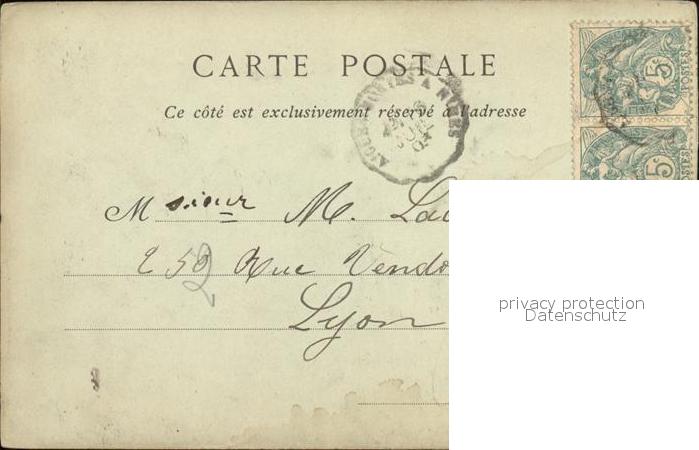 CARTE POSTALE
Ce côté est exclusivement réservé à l'adresse
5c
POSTES
5c
Msieur M.
250 Rue
Lyon
2
privacy protection
Datenschutz